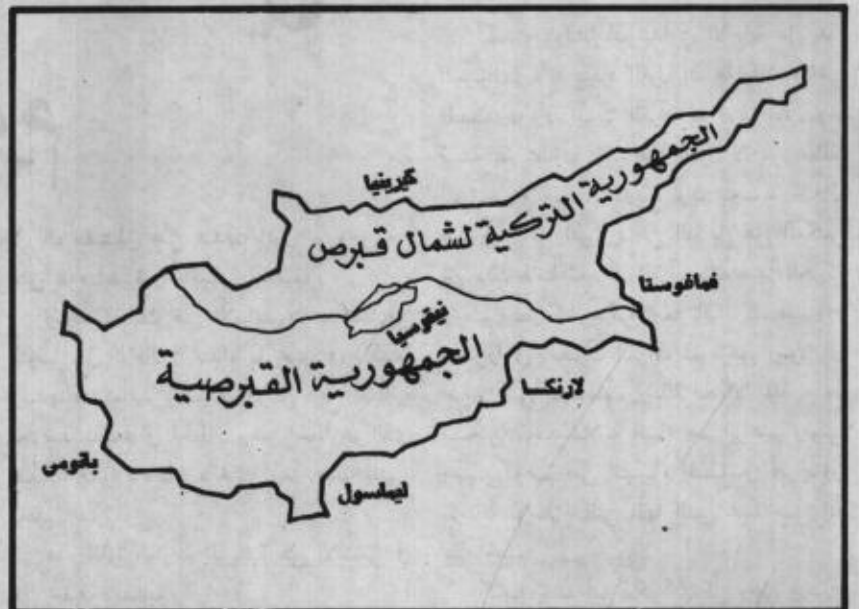 كيرينيا
الجمهورية التركية لشمال قبرص
فمافوستا
نيقوسيا
الجمهورية القبرصية
لارنكا
بانومى
ليماسول